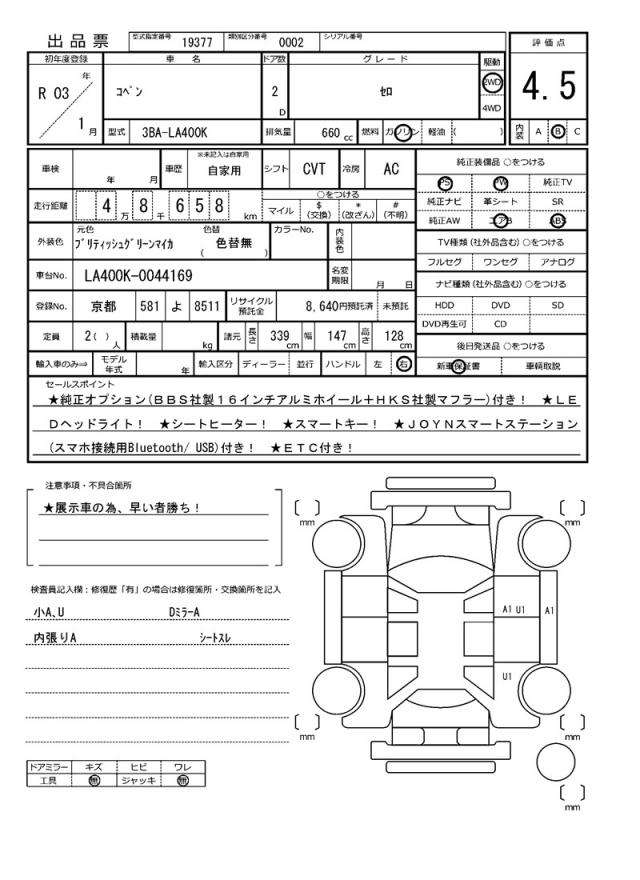 出品票 型式指定番号 19377 類別区分番号 0002 シリアル番号
評価点
4.5
内装 A B C
初年度登録 車名 ドア数 グレード 駆動
R 03 年 1 月
コペン 2 D セロ 2WD 4WD
型式 3BA-LA400K 排気量 660 cc 燃料 ガソリン 軽油 ( )
車検 年 月 車歴 ※未記入は自家用 自家用 シフト CVT 冷房 AC
走行距離 4 万 8 千 6 5 8 km
○をつける
マイル $ (交換) * (改ざん) # (不明)
外装色 元色 ブリティッシュグリーンマイカ 色替 ( 色替無 ) カラーNo. 内装色
車台No. LA400K-0044169 名変期限 月 日
登録No. 京都 581 よ 8511 リサイクル預託金 8,640円預託済 未預託
定員 2( ) 人 積載量 kg 諸元 長さ 339 cm 幅 147 cm 高さ 128 cm
輸入車のみ⇨ モデル年式 年 輸入区分 ディーラー 並行 ハンドル 左 右
純正装備品 ○をつける
PS PW 純正TV
純正ナビ 革シート SR
純正AW エアB ABS
TV種類 (社外品含む) ○をつける
フルセグ ワンセグ アナログ
ナビ種類 (社外品含む) ○をつける
HDD DVD SD
DVD再生可 CD
後日発送品 ○をつける
新車保証書 車輌取説
セールスポイント
★純正オプション(BBS社製16インチアルミホイール+HKS社製マフラー)付き! ★LE
Dヘッドライト! ★シートヒーター! ★スマートキー! ★JOYNスマートステーション
(スマホ接続用Bluetooth/ USB)付き! ★ETC付き!
注意事項・不具合箇所
★展示車の為、早い者勝ち!
検査員記入欄：修復歴「有」の場合は修復箇所・交換箇所を記入
小A､U Dミラ-A
内張りA シートスレ
ドアミラー キズ ヒビ ワレ
工具 無 ジャッキ 無
mm
mm
A1 U1 A1
U1
mm
mm
mm